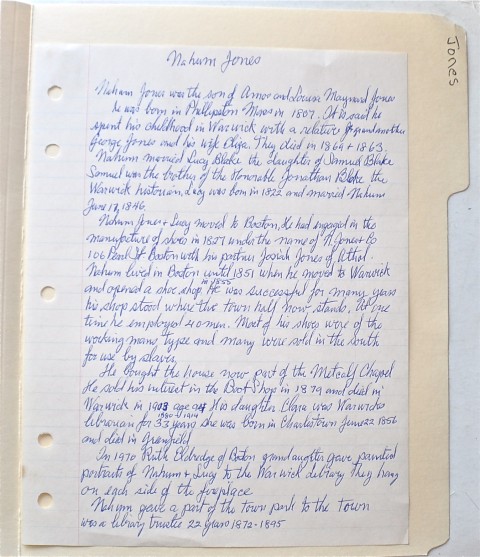 Jones
Nahum Jones
Nahum Jones was the son of Amos and Louisa Maynard Jones
he was born in Phillipston Mass in 1807. It is said he
spent his childhood in Warwick with a relative grandmother
George Jones and his wife Eliza. They died in 1864 + 1863.
Nahum married Lucy Blake the daughter of Samuel Blake
Samuel was the brother of the Honorable Jonathan Blake the
Warwick historian. Lucy was born in 1822 and married Nahum
June 17, 1846.
Nahum Jones + Lucy moved to Boston, He had engaged in the
manufacture of shoes in 1837 under the name of N Jones + Co
106 Pearl St Boston with his partner Josiah Jones of Athol.
Nahum lived in Boston until 1851 when he moved to Warwick
and opened a shoe shop. in 1855 He was successful for many years
his shop stood where the town hall now stands. At one
time he employed 40 men. Most of his shoes were of the
working mans type and many were sold in the south
for use by slaves.
He bought the house now part of the Metcalf Chapel
He sold his interest in the Boot Shop in 1879 and died in
Warwick in 1903 age His daughter Clara was Warwicks
librarian for 33 years she was born in Charlestown June 22 1856
and died in Greenfield
In 1970 Ruth Eldredge of Boston grandaughter gave painted
portraits of Nahum + Lucy to the Warwick library they hang
on each side of the fireplace
Nahum gave a part of the town park to the town
was a library trustee 22 years 1872-1895